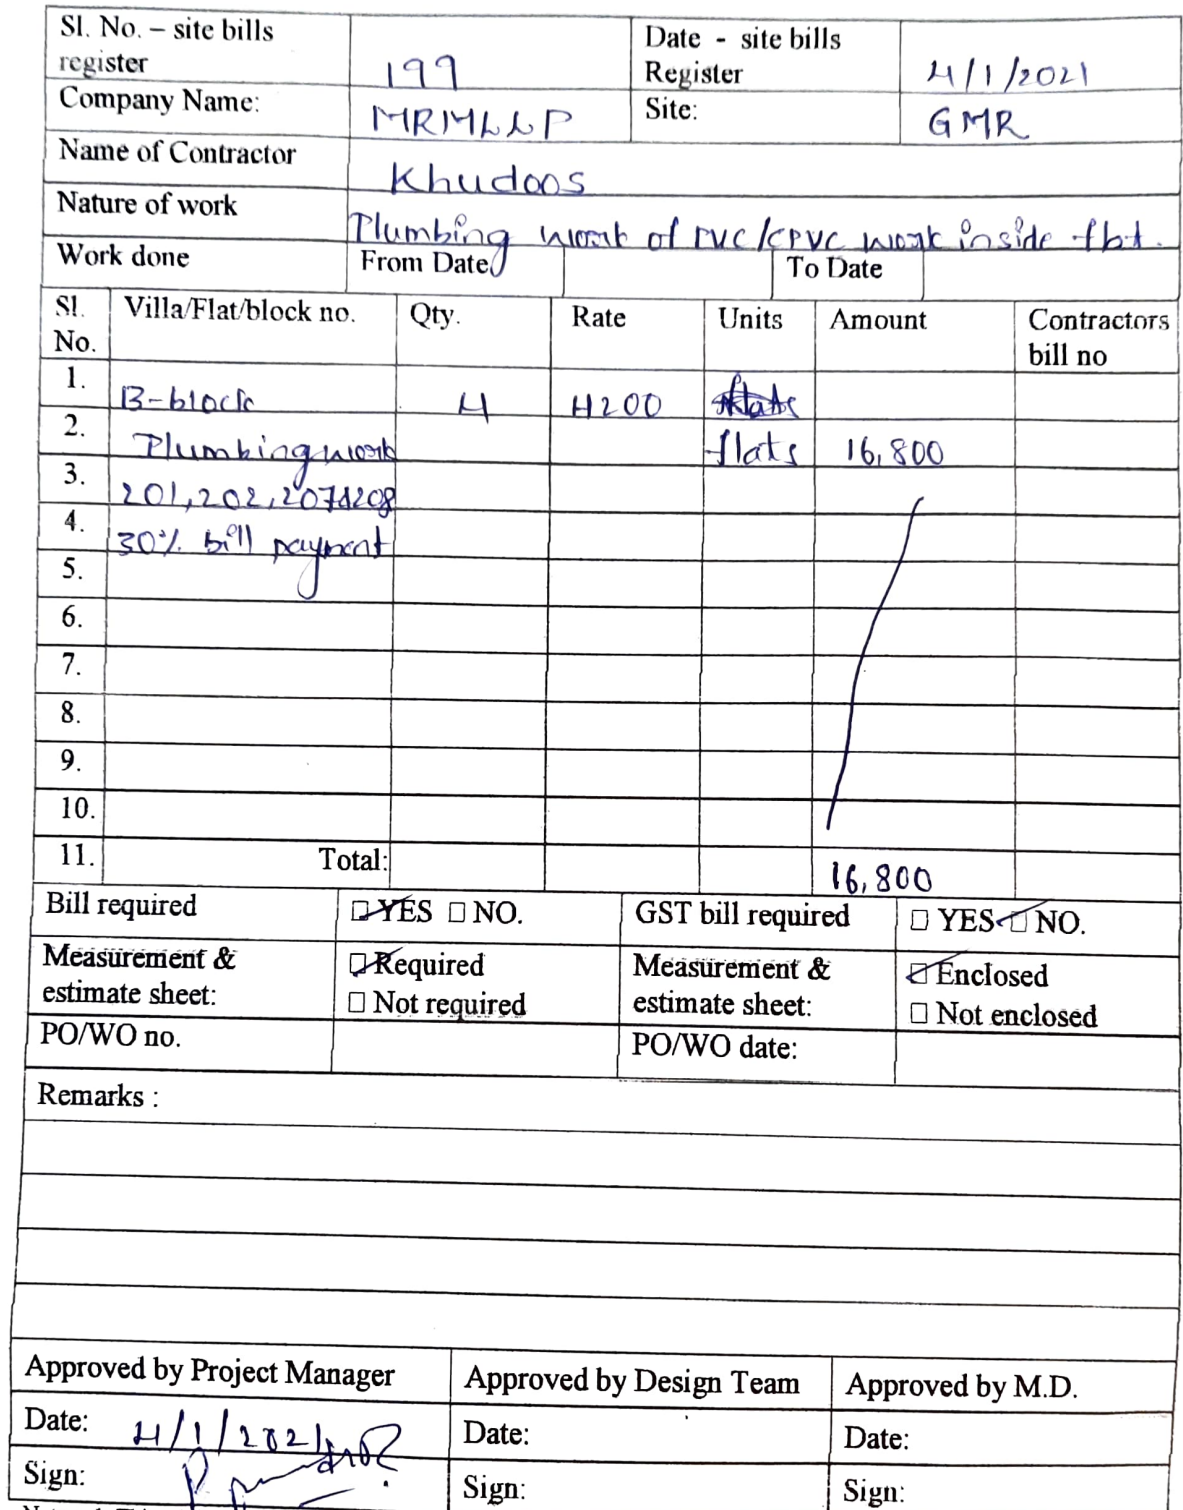 Sl. No. – site bills register 199 Date - site bills Register 4/1/2021
Company Name: MRMLLP Site: GMR
Name of Contractor Khudoos
Nature of work Plumbing work of PVC/CPVC work inside flat.
Work done From Date To Date
Sl. No. Villa/Flat/block no. Qty. Rate Units Amount Contractors bill no
1. B-block 4 4200 flats
2. Plumbing work flats 16,800
3. 201,202,207&208
4. 30% bill payment
5.
6.
7.
8.
9.
10.
11. Total: 16,800
Bill required ☑ YES ☐ NO. GST bill required ☐ YES ☑ NO.
Measurement & estimate sheet: ☑ Required ☐ Not required Measurement & estimate sheet: ☑ Enclosed ☐ Not enclosed
PO/WO no. PO/WO date:
Remarks :
Approved by Project Manager Approved by Design Team Approved by M.D.
Date: 4/1/2021 Date: Date:
Sign: Sign: Sign: